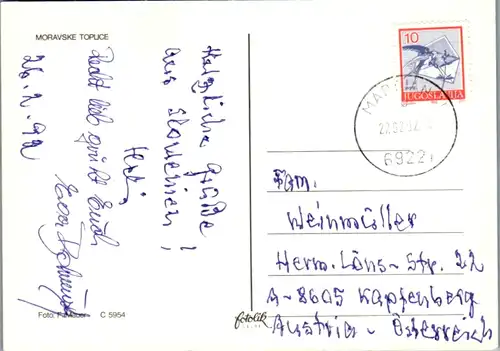 MORAVSKE TOPLICE
Herzliche Grüße
aus Slowenien!
Herta
Recht lieb grüßt Euch
26.2.92
Foto: F. C 5954
fotolik
10
JUGOSLAVIJA
69221
Fam.
Weinmüller
Herm. Löns-Str. 22
A-8605 Kapfenberg
Austria - Österreich